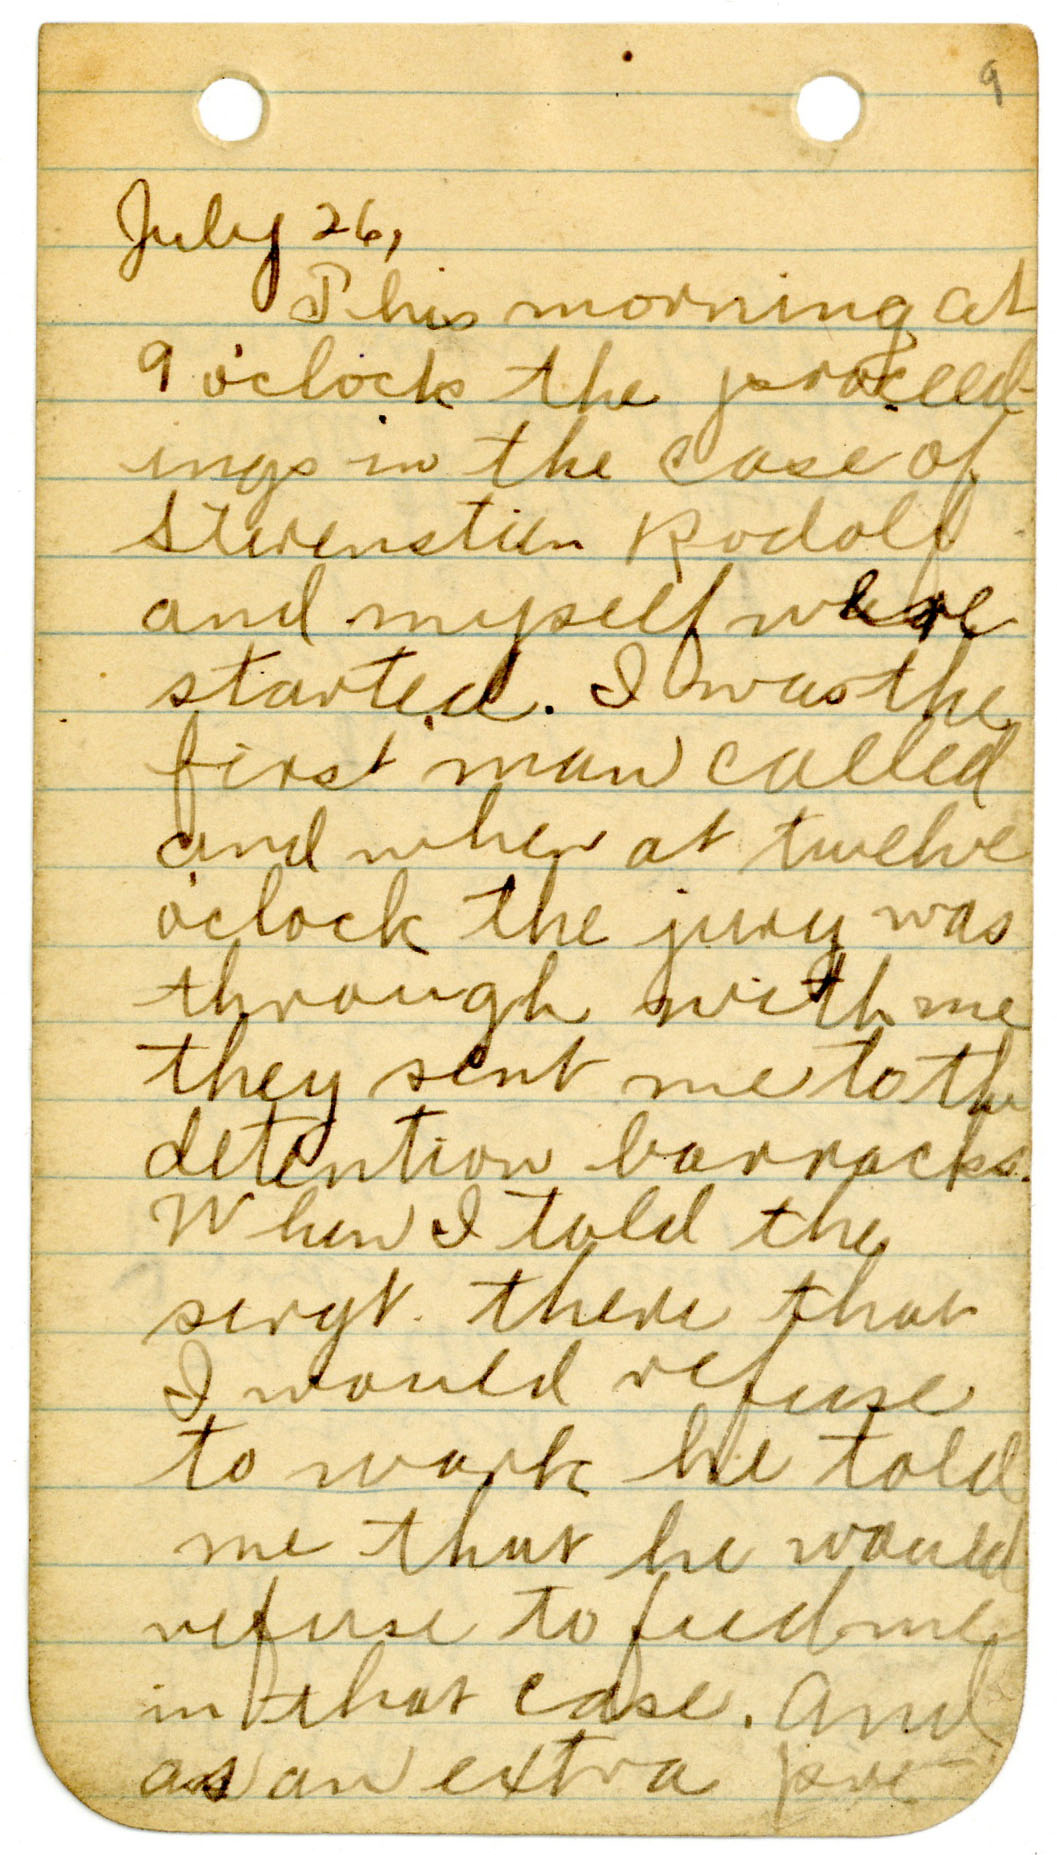 9
July 26,
This morning at
9 o'clock the proceed-
ings in the case of
Sterenstien Rodolf
and myself were
started. I was the
first man called
and when at twelve
o'clock the jury was
through with me
they sent me to the
detention barracks.
When I told the
sergt. there that
I would refuse
to work he told
me that he would
refuse to feed me
in that case. And
as an extra pre-